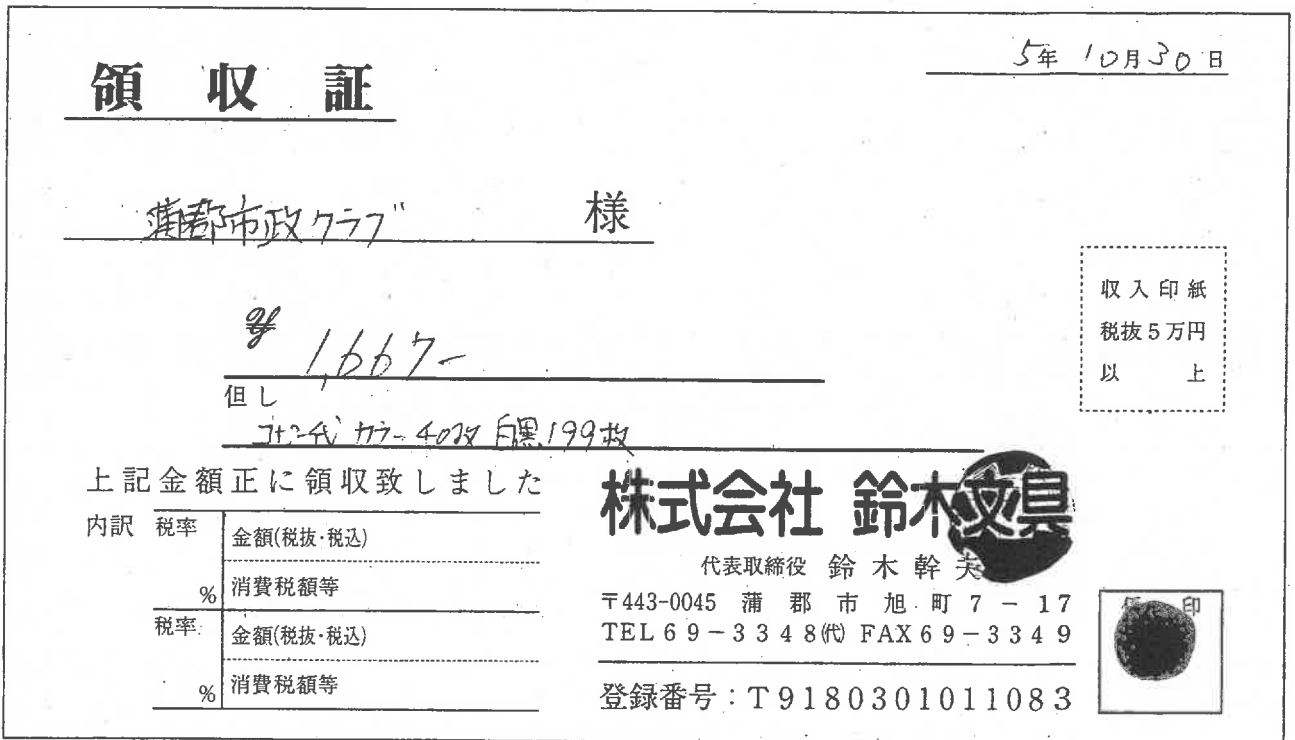 領収証
5年10月30日
蒲郡市政クラブ 様
¥ 1,667-
但し
コピー代 カラー40枚 白黒199枚
収入印紙
税抜5万円
以上
上記金額正に領収致しました
内訳 税率 % 金額(税抜・税込)
消費税額等
税率 % 金額(税抜・税込)
消費税額等
株式会社 鈴木文具
代表取締役 鈴木幹夫
〒443-0045 蒲郡市旭町7-17
TEL69-3348㈹ FAX69-3349
登録番号:T9180301011083
印